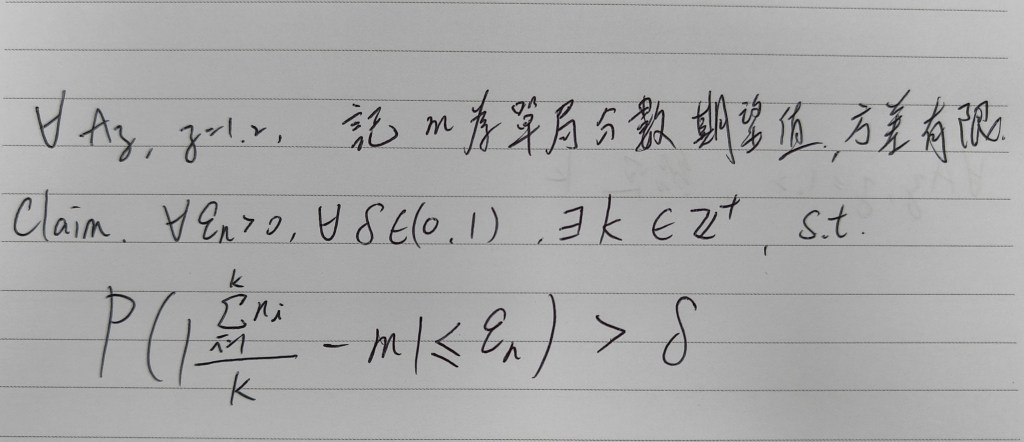 ∀ A_z, z=1.2, 記 m 為單局分數期望值, 方差有限.
Claim. ∀ε_n>0, ∀ δ∈(0.1), ∃ k ∈ Z⁺, s.t.
P(|\frac{\sum_{i=1}^{k} n_i}{k} - m| ≤ ε_n) > δ